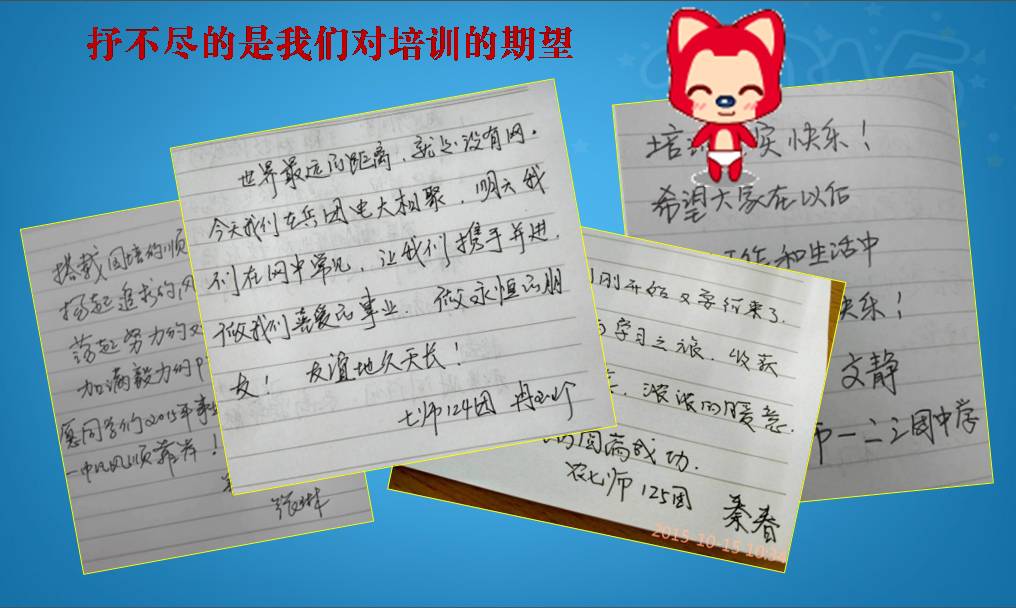 抒不尽的是我们对培训的期望
搭载国培的顺
扬起追求的风
荡起努力的
加满毅力的
愿同学们2015年事
一帆风顺靠岸！
张琳
世界最远的距离，就是没有网。
今天我们在兵团电大相聚，明天我
们在网中常见，让我们携手并进，
做我们喜爱的事业，做永恒的朋
友！ 友谊地久天长！
七师124团
刚开始又要结束了.
学习之旅，收获
浓浓的暖意.
圆满成功.
农七师125团 秦春
2015-10-15 10:34
培 实快乐！
希望大家在以后
工作和生活中
快乐！
文静
师一二三团中学